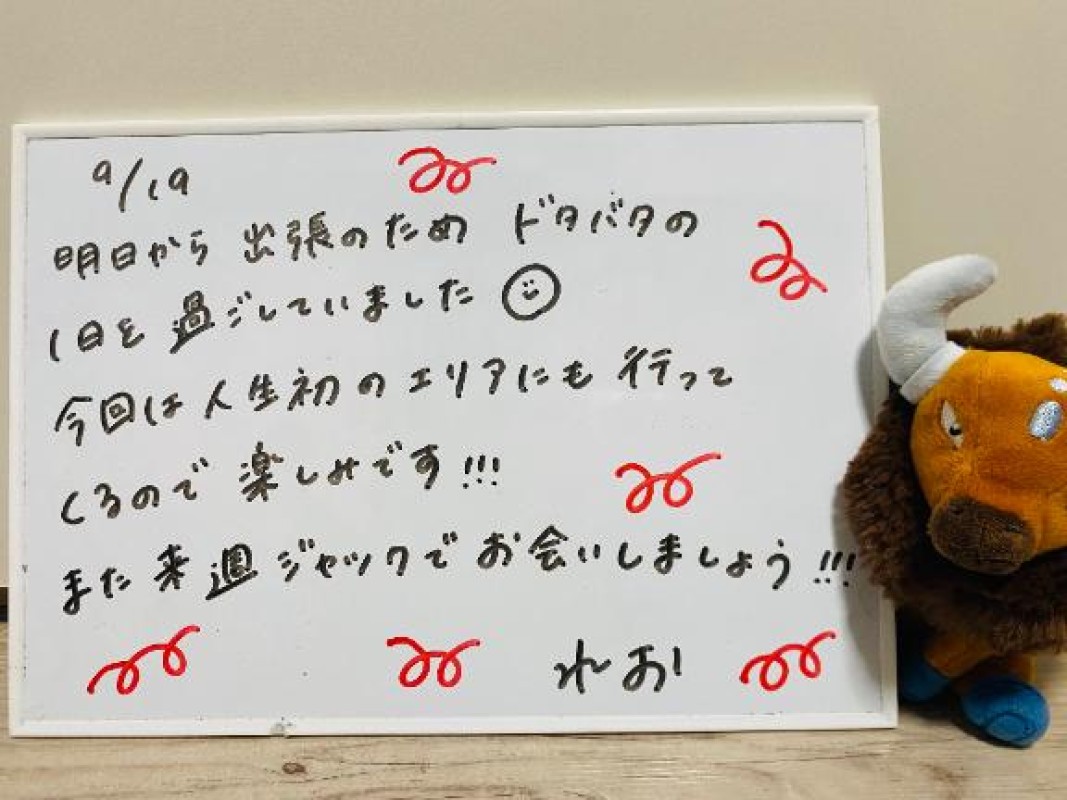 9/19
明日から 出張のため ドタバタの
1日を 過ごしていました
今回は 人生初の エリアにも 行って
くるので 楽しみです!!!
また 来週 ジャックで お会いしましょう!!!
れお!